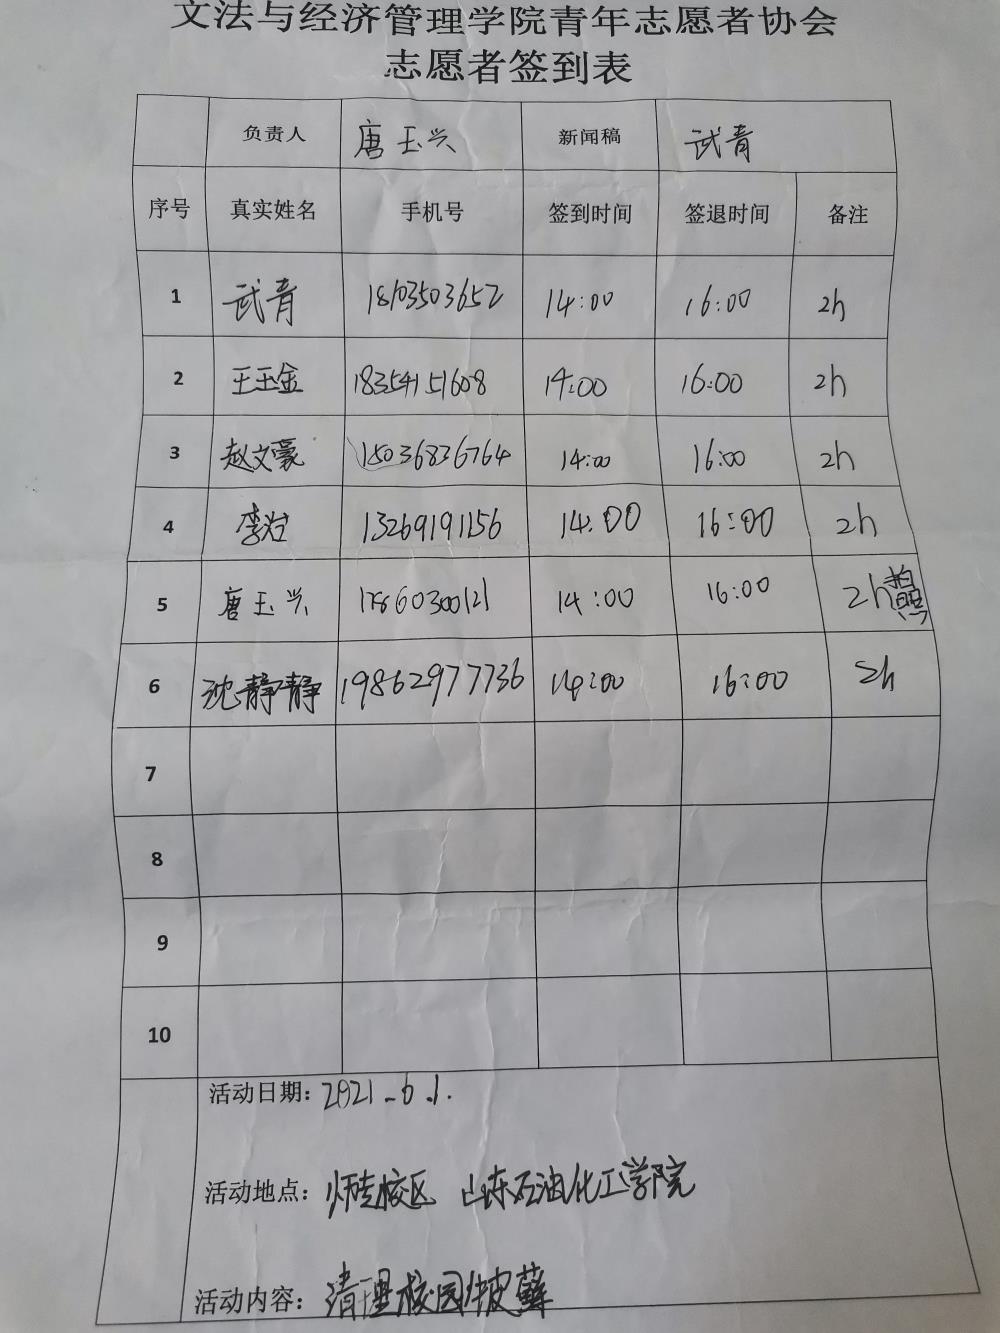 文法与经济管理学院青年志愿者协会
志愿者签到表
负责人 唐玉兴 新闻稿 武青
序号 真实姓名 手机号 签到时间 签退时间 备注
1 武青 18103503652 14:00 16:00 2h
2 王玉金 18354151608 14:00 16:00 2h
3 赵文豪 15036836764 14:00 16:00 2h
4 李 13269191156 14:00 16:00 2h
5 唐玉兴 17860300121 14:00 16:00 2h 拍照
6 沈静静 19862977736 14:00 16:00 2h
7
8
9
10
活动日期: 2021.6.1.
活动地点: 校区 山东石油化工学院
活动内容: 清理校园牛皮藓